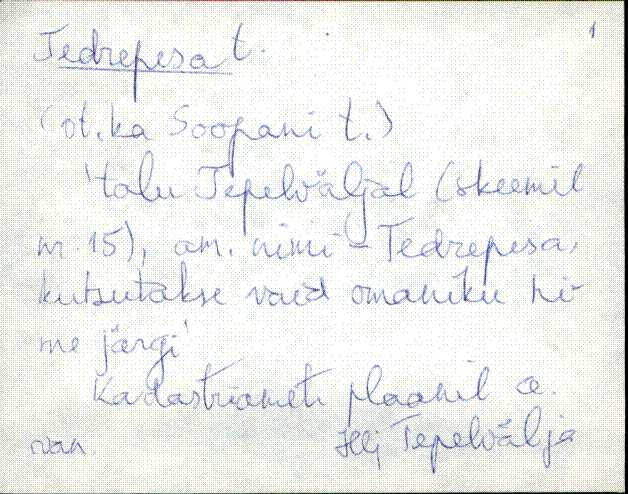 1
Tedrepesa t.
(vt. ka Soopani t.)
'talu Tepelväljal (skeemil
nr 15), am. nimi - Tedrepesa,
kutsutakse vaid omaniku ni-
me järgi'
Kadastriameti plaanil
Hlj Tepelvälja